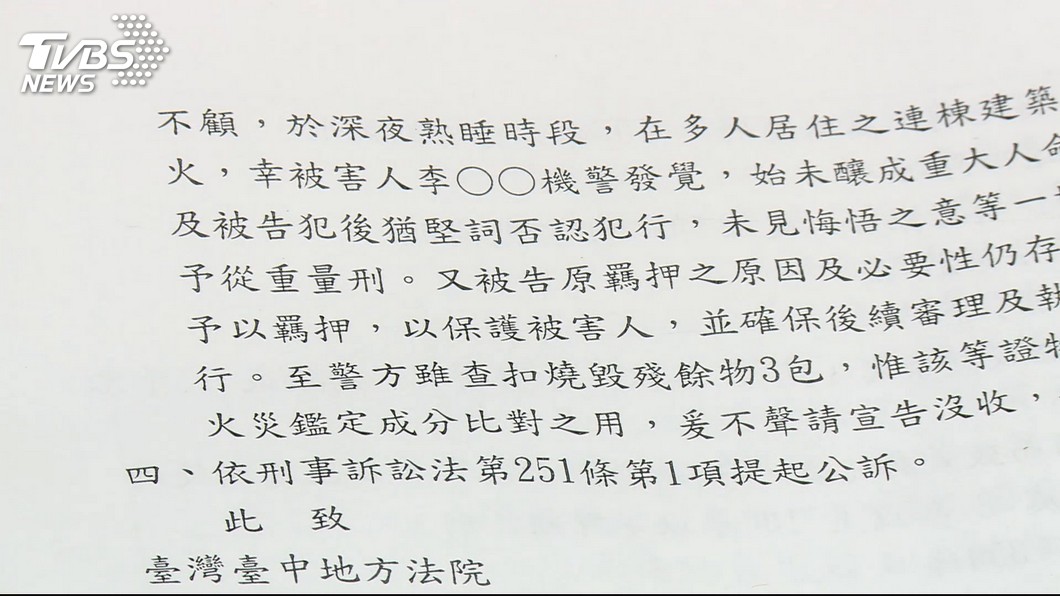 TVBS
NEWS
不顧，於深夜熟睡時段，在多人居住之連棟建築
火，幸被害人李○○機警發覺，始未釀成重大人命
及被告犯後猶堅詞否認犯行，未見悔悟之意等一
予從重量刑。又被告原羈押之原因及必要性仍存
予以羈押，以保護被害人，並確保後續審理及執
行。至警方雖查扣燒毀殘餘物3包，惟該等證物
火災鑑定成分比對之用，爰不聲請宣告沒收，
四、依刑事訴訟法第251條第1項提起公訴。
此 致
臺灣臺中地方法院